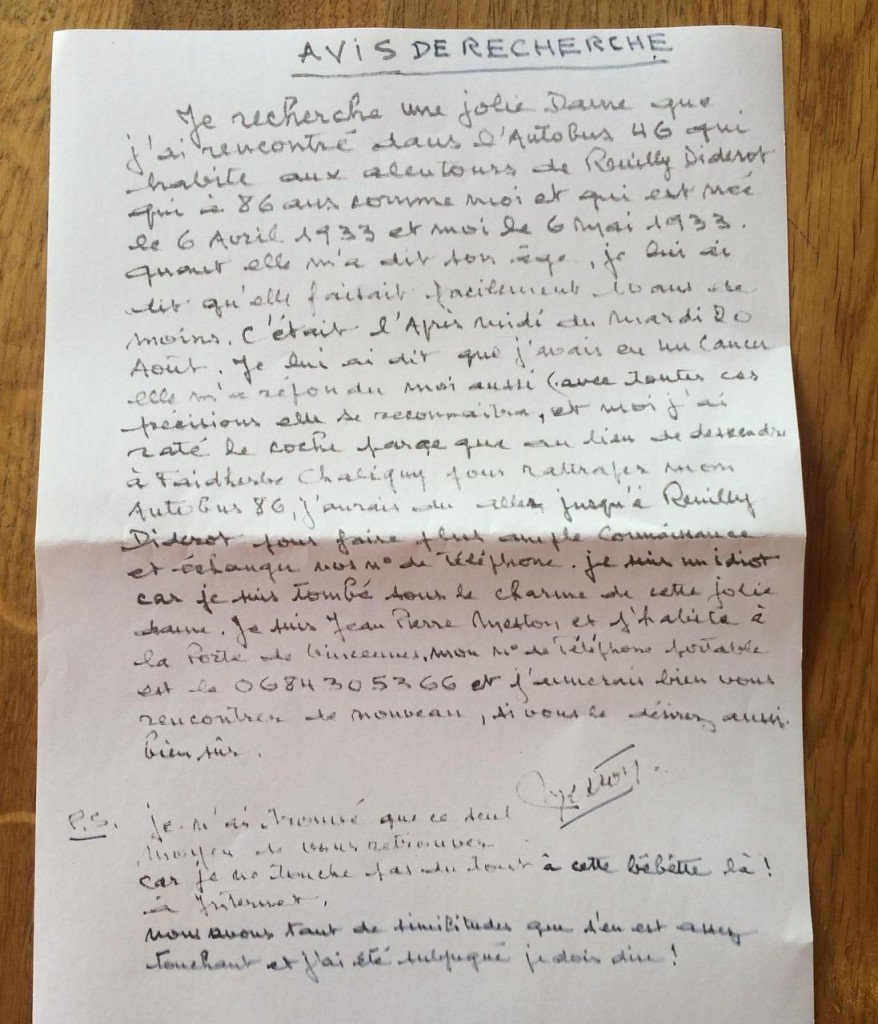 AVIS DE RECHERCHE
Je recherche une jolie Dame que
j'ai rencontré dans l'Autobus 46 qui
habite aux alentours de Reuilly Diderot
qui à 86 ans comme moi et qui est née
le 6 Avril 1933 et moi le 6 Mai 1933.
Quant elle m'a dit son âge, je lui ai
dit qu'elle faisait facilement 10 ans de
moins. C'était l'Après midi du Mardi 20
Août. Je lui ai dit que j'avais eu un Cancer
elle m'a répondu moi aussi (avec toutes ces
précisions elle se reconnaitra, et moi j'ai
raté le coche parce que au lieu de descendre
à Faidherbe Chaligny pour rattraper mon
Autobus 86, j'aurais du aller jusqu'à Reuilly
Diderot pour faire plus ample Connaissance
et échanger nos n° de Téléphone. je suis un idiot
car je suis tombé sous le charme de cette jolie
dame. Je suis Jean Pierre et j'habite à
la Porte de Vincennes, mon n° de Téléphone portable
est le 0684305366 et j'aimerais bien vous
rencontrer de nouveau, si vous le désirez aussi
bien sûr.
P.S. je n'ai trouvé que ce seul
moyen de vous retrouver
car je ne touche pas du tout à cette bébête là !
à Internet.
nous avons tant de similitudes que s'en est assez
touchant et j'ai été subjugué je dois dire !